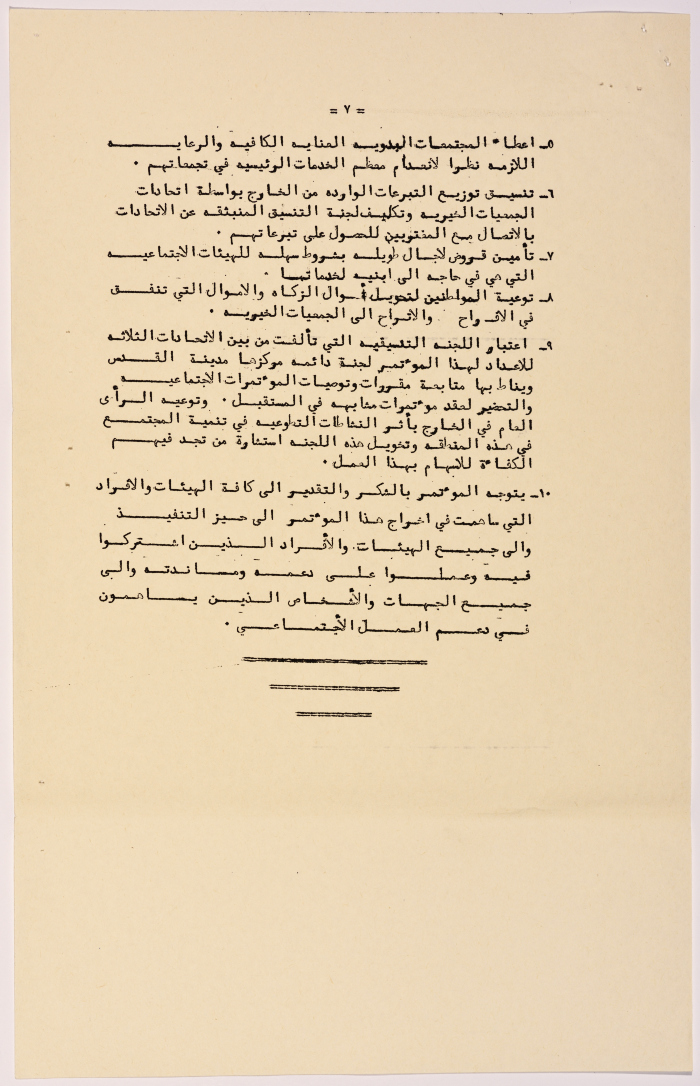 = ٧ =
٥ـ اعطاء المجتمعات البدويه العنايه الكافيه والرعايه
اللازمه نظرا لانعدام معظم الخدمات الرئيسيه في تجمعاتهم .
٦ـ تنسيق توزيع التبرعات الوارده من الخارج بواسطة اتحادات
الجمعيات الخيريه وتكليف لجنة التنسيق المنبثقه عن الاتحادات
بالاتصال مع المغتربين للحصول على تبرعاتهم .
٧ـ تأمين قروض لاجال طويله بشروط سهله للهيئات الاجتماعيه
التي هي في حاجه الى ابنيه لخدماتها .
٨ـ توعية المواطنين لتحويل أموال الزكاه والاموال التي تنفق
في الافراح والاتراح الى الجمعيات الخيريه .
٩ـ اعتبار اللجنه التنسيقيه التي تألفت من بين الاتحادات الثلاثه
للاعداد لهذا الموءتمر لجنة دائمه مركزها مدينة القدس
ويناط بها متابعة مقررات وتوصيات الموءتمرات الاجتماعيه
والتحضير لعقد موءتمرات مشابهه في المستقبل . وتوعيه الرأى
العام في الخارج بأثر النشاطات التطوعيه في تنمية المجتمع
في هذه المنطقه وتخويل هذه اللجنه استشارة من تجد فيهم
الكفاءة للاسهام بهذا العمل .
١٠ـ يتوجه الموءتمر بالشكر والتقدير الى كافة الهيئات والافراد
التي ساهمت في اخراج هذا الموءتمر الى حيز التنفيذ
والى جميع الهيئات والأفراد الذين اشتركوا
فيه وعملوا على دعمه ومساندته والى
جميع الجهات والأشخاص الذين يساهمون
في دعم العمل الأجتماعي .